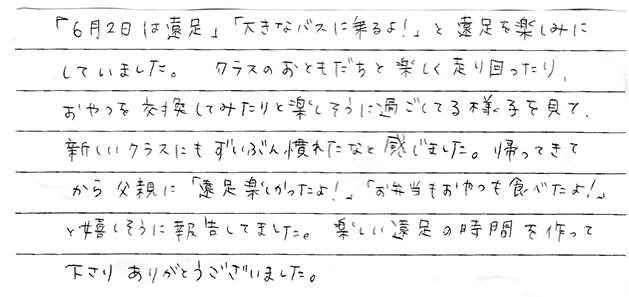 「6月2日は遠足」「大きなバスに乗るよ!」と遠足を楽しみに
していました。 クラスのおともだちと楽しく走り回ったり、
おやつを交換してみたりと楽しそうに過ごしてる様子を見て、
新しいクラスにもずいぶん慣れたなと感じました。帰ってきて
から父親に「遠足楽しかったよ!」「お弁当もおやつも食べたよ!」
と嬉しそうに報告してました。 楽しい遠足の時間を作って
下さりありがとうございました。